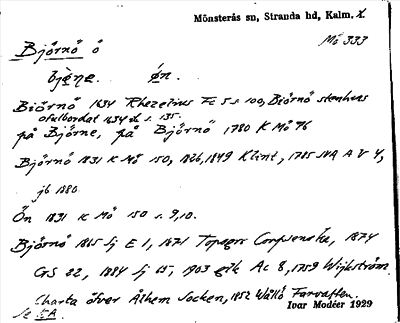 Mönsterås sn, Stranda hd, Kalm. l.
Mö 333
Björnö ö
bjǫ̀ṇe. ǿn.
Biörnö 1634 Rhezelius Fc 5 s 100, Biörnö stenhus
ofulbordat 1634 ib s. 135.
på Björne, på Björnö 1780 K Mö 76
Björnö 1831 K Mö 150, 1826, 1849 Klint, 1785 SVA A V 4,
jb 1880.
Ön 1831 K Mö 150 s 9, 10.
Björnö 1865 Sj E 1, 1671 Topogr Corpsenske, 1874
GS 22, 1884 Sj 15, 1903 Ac 8, 1759 Wijkström
Charta öfver Ålhem Socken, 1852 Wållö Farvatten.
Se 5A.
Ivar Modéer 1929